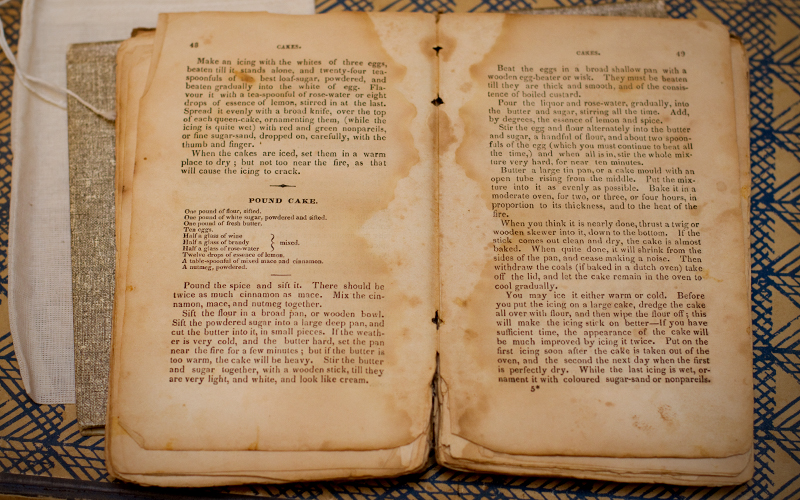 48
CAKES.
Make an icing with the whites of three eggs,
beaten till it stands alone, and twenty-four tea-
spoonfuls of best loaf-sugar, powdered, and
beaten gradually into the white of egg. Fla-
vour it with a tea-spoonful of rose-water or eight
drops of essence of lemon, stirred in at the last.
Spread it evenly with a broad knife, over the top
of each queen-cake, ornamenting them, (while the
icing is quite wet) with red and green nonpareils,
or fine sugar-sand, dropped on, carefully, with the
thumb and finger.
When the cakes are iced, set them in a warm
place to dry; but not too near the fire, as that
will cause the icing to crack.
POUND CAKE.
One pound of flour, sifted.
One pound of white sugar, powdered and sifted.
One pound of fresh butter.
Ten eggs.
Half a glass of wine
Half a glass of brandy } mixed.
Half a glass of rose-water
Twelve drops of essence of lemon.
A table-spoonful of mixed mace and cinnamon.
A nutmeg, powdered.
Pound the spice and sift it. There should be
twice as much cinnamon as mace. Mix the cin-
namon, mace, and nutmeg together.
Sift the flour in a broad pan, or wooden bowl.
Sift the powdered sugar into a large deep pan, and
cut the butter into it, in small pieces. If the weath-
er is very cold, and the butter hard, set the pan
near the fire for a few minutes; but if the butter is
too warm, the cake will be heavy. Stir the butter
and sugar together, with a wooden stick, till they
are very light, and white, and look like cream.
CAKES.
49
Beat the eggs in a broad shallow pan with a
wooden egg-beater or wisk. They must be beaten
till they are thick and smooth, and of the consis-
tence of boiled custard.
Pour the liquor and rose-water, gradually, into
the butter and sugar, stirring all the time. Add,
by degrees, the essence of lemon and spice.
Stir the egg and flour alternately into the butter
and sugar, a handful of flour, and about two spoon-
fuls of the egg (which you must continue to beat all
the time,) and when all is in, stir the whole mix-
ture very hard, for near ten minutes.
Butter a large tin pan, or a cake mould with an
open tube rising from the middle. Put the mix-
ture into it as evenly as possible. Bake it in a
moderate oven, for two, or three, or four hours, in
proportion to its thickness, and to the heat of the
fire.
When you think it is nearly done, thrust a twig or
wooden skewer into it, down to the bottom. If the
stick comes out clean and dry, the cake is almost
baked. When quite done, it will shrink from the
sides of the pan, and cease making a noise. Then
withdraw the coals (if baked in a dutch oven) take
off the lid, and let the cake remain in the oven to
cool gradually.
You may ice it either warm or cold. Before
you put the icing on a large cake, dredge the cake
all over with flour, and then wipe the flour off; this
will make the icing stick on better—If you have
sufficient time, the appearance of the cake will
be much improved by icing it twice. Put on the
first icing soon after the cake is taken out of the
oven, and the second the next day when the first
is perfectly dry. While the last icing is wet, or-
nament it with coloured sugar-sand or nonpareils.
5*